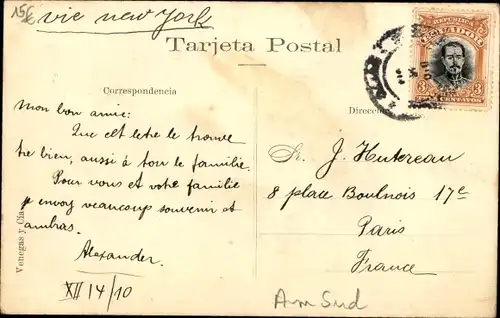 15€
vie new York
Tarjeta Postal
REPUBLICA
ECUADOR
3 3
CENTAVOS
Correspondencia
Direccion
mon bon amie:
Que cet letre le trouve
tre bien, aussi à tou le familie.
Pour vous et votre familie
je envoy beaucoup souvenir et
ambras.
Alexander.
XII 14/10
Sr. J. Hutereau
8 place Boulnois 17e
Paris
France
Am Sud
Venegas y Cia